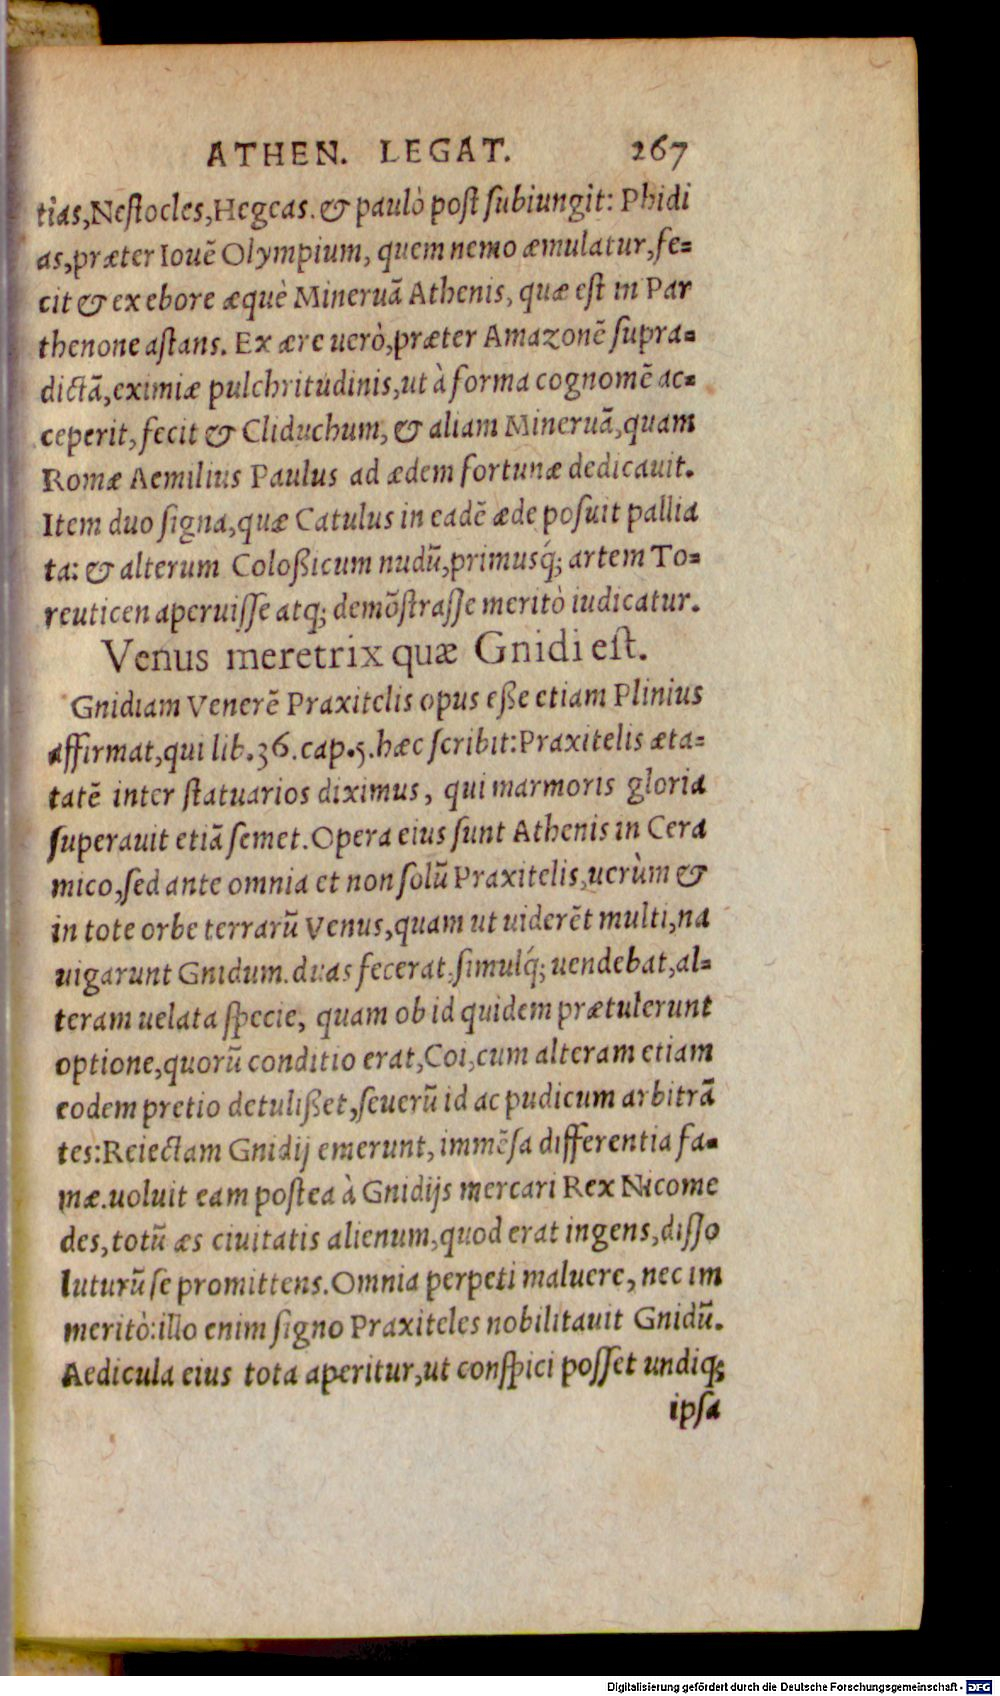 ATHEN. LEGAT. 267
tias,Nestocles,Hegeas. & paulò post subiungit: Phidi
as,præter Iouē Olympium, quem nemo æmulatur,fe=
cit & ex ebore æquè Mineruā Athenis, quæ est in Par
thenone astans. Ex ære uerò,præter Amazonē supra=
dictā,eximiæ pulchritudinis,ut à forma cognomē ac=
ceperit, fecit & Cliduchum, & aliam Mineruā,quam
Romæ Aemilius Paulus ad ædem fortunæ dedicauit.
Item duo signa,quæ Catulus in eadē æde posuit pallia
ta: & alterum Coloßicum nudū,primusq́; artem To=
reuticen aperuisse atq; demōstrasse meritò iudicatur.
Venus meretrix quæ Gnidi est.
Gnidiam Venerē Praxitelis opus eße etiam Plinius
affirmat,qui lib.36.cap.5.hæc scribit:Praxitelis æta=
tatē inter statuarios diximus, qui marmoris gloria
superauit etiā semet. Opera eius sunt Athenis in Cera
mico,sed ante omnia et non solū Praxitelis,uerùm &
in tote orbe terrarū Venus,quam ut uiderēt multi,na
uigarunt Gnidum. duas fecerat,simulq́; uendebat,al=
teram uelata specie, quam ob id quidem prætulerunt
optione,quorū conditio erat,Coi,cum alteram etiam
eodem pretio detulißet,seuerū id ac pudicum arbitrā
tes:Reiectam Gnidij emerunt, immēsa differentia fa=
mæ.uoluit eam postea à Gnidijs mercari Rex Nicome
des,totū æs ciuitatis alienum,quod erat ingens,disso
luturū se promittens.Omnia perpeti maluere, nec im
meritò:illo enim signo Praxiteles nobilitauit Gnidū.
Aedicula eius tota aperitur,ut conspici posset undiq;
ipsa
Digitalisierung gefördert durch die Deutsche Forschungsgemeinschaft - DFG